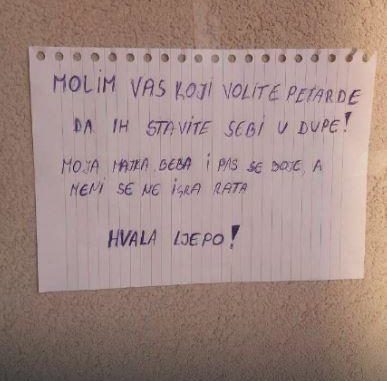 MOLIM VAS KOJI VOLITE PETARDE
DA IH STAVITE SEBI U DUPE!
MOJA MAJKA, BEBA I PAS SE BOJE, A
MENI SE NE IGRA RATA
HVALA LJEPO!